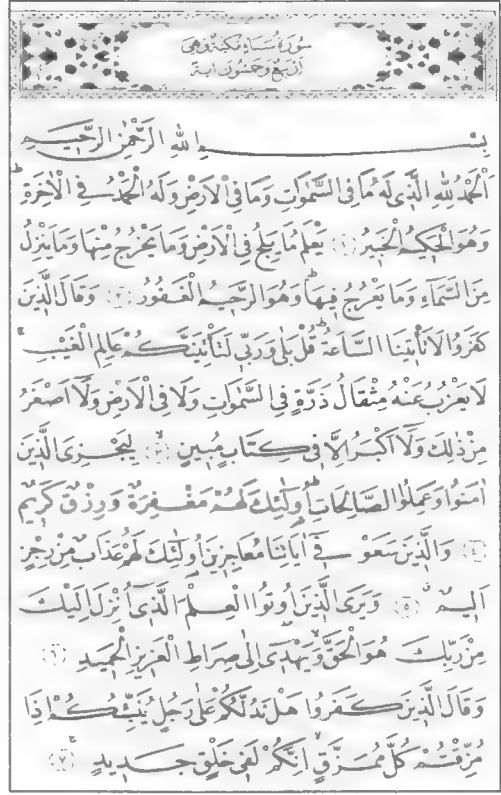 سُورَةُ سَبَأٍ مَكِّيَّةٌ وَهِيَ
اَرْبَعٌ وَخَمْسُونَ اٰيَةً
بِسْمِ اللّٰهِ الرَّحْمٰنِ الرَّحِيمِ
اَلْحَمْدُ لِلّٰهِ الَّذِى لَهُ مَا فِى السَّمٰوَاتِ وَمَا فِى الْاَرْضِ وَلَهُ الْحَمْدُ فِى الْاٰخِرَةِ
وَهُوَ الْحَكِيمُ الْخَبِيرُ ﴿١﴾ يَعْلَمُ مَا يَلِجُ فِى الْاَرْضِ وَمَا يَخْرُجُ مِنْهَا وَمَا يَنْزِلُ
مِنَ السَّمَاءِ وَمَا يَعْرُجُ فِيهَا وَهُوَ الرَّحِيمُ الْغَفُورُ ﴿٢﴾ وَقَالَ الَّذِينَ
كَفَرُوا لَا تَأْتِينَا السَّاعَةُ قُلْ بَلٰى وَرَبِّى لَتَأْتِيَنَّكُمْ عَالِمِ الْغَيْبِ
لَا يَعْزُبُ عَنْهُ مِثْقَالُ ذَرَّةٍ فِى السَّمٰوَاتِ وَلَا فِى الْاَرْضِ وَلَا اَصْغَرُ
مِنْ ذٰلِكَ وَلَا اَكْبَرُ اِلَّا فِى كِتَابٍ مُبِينٍ ﴿٣﴾ لِيَجْزِىَ الَّذِينَ
اٰمَنُوا وَعَمِلُوا الصَّالِحَاتِ اُولٰئِكَ لَهُمْ مَغْفِرَةٌ وَرِزْقٌ كَرِيمٌ
﴿٤﴾ وَالَّذِينَ سَعَوْ فِى اٰيَاتِنَا مُعَاجِزِينَ اُولٰئِكَ لَهُمْ عَذَابٌ مِنْ رِجْزٍ
اَلِيمٌ ﴿٥﴾ وَيَرَى الَّذِينَ اُوتُوا الْعِلْمَ الَّذِى اُنْزِلَ اِلَيْكَ
مِنْ رَبِّكَ هُوَ الْحَقَّ وَيَهْدِى اِلٰى صِرَاطِ الْعَزِيزِ الْحَمِيدِ ﴿٦﴾
وَقَالَ الَّذِينَ كَفَرُوا هَلْ نَدُلُّكُمْ عَلٰى رَجُلٍ يُنَبِّئُكُمْ اِذَا
مُزِّقْتُمْ كُلَّ مُمَزَّقٍ اِنَّكُمْ لَفِى خَلْقٍ جَدِيدٍ ﴿٧﴾